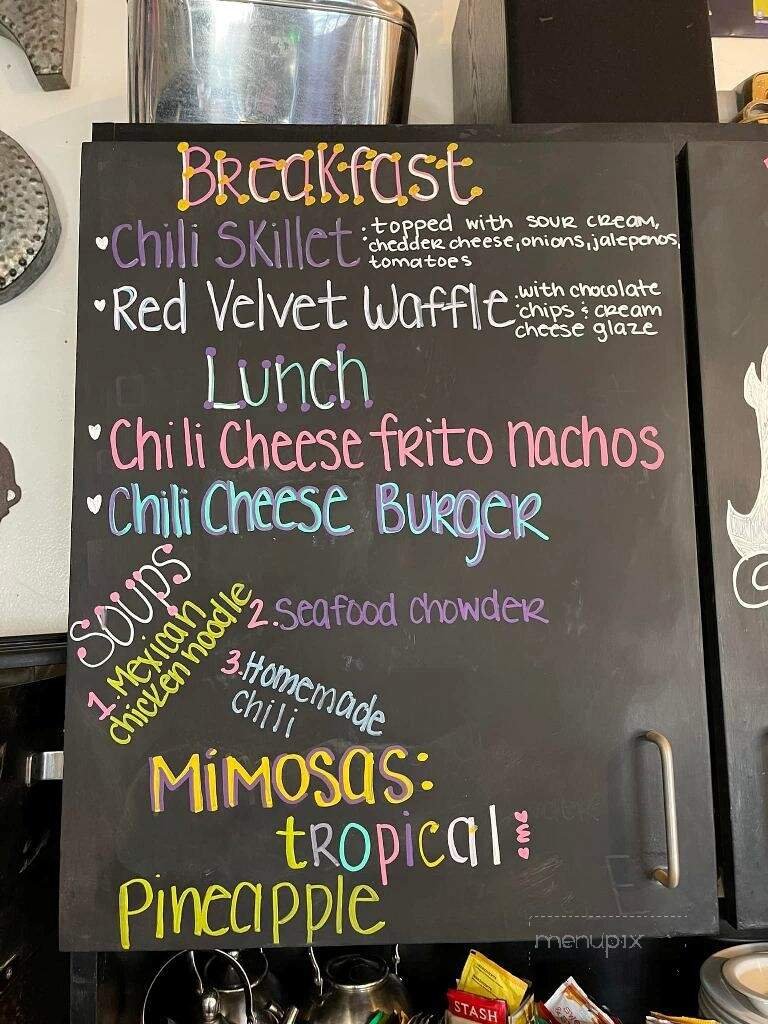 Breakfast
Chili Skillet
• topped with sour cream,
chedder cheese, onions, jalepenos,
tomatoes
Red Velvet Waffle
• with chocolate
chips & cream
cheese glaze
Lunch
Chili Cheese frito nachos
Chili Cheese Burger
Soups
1. Mexican
chicken noodle
2. Seafood chowder
3. Homemade
chili
Mimosas:
tropical
Pineapple
menupix
STASH